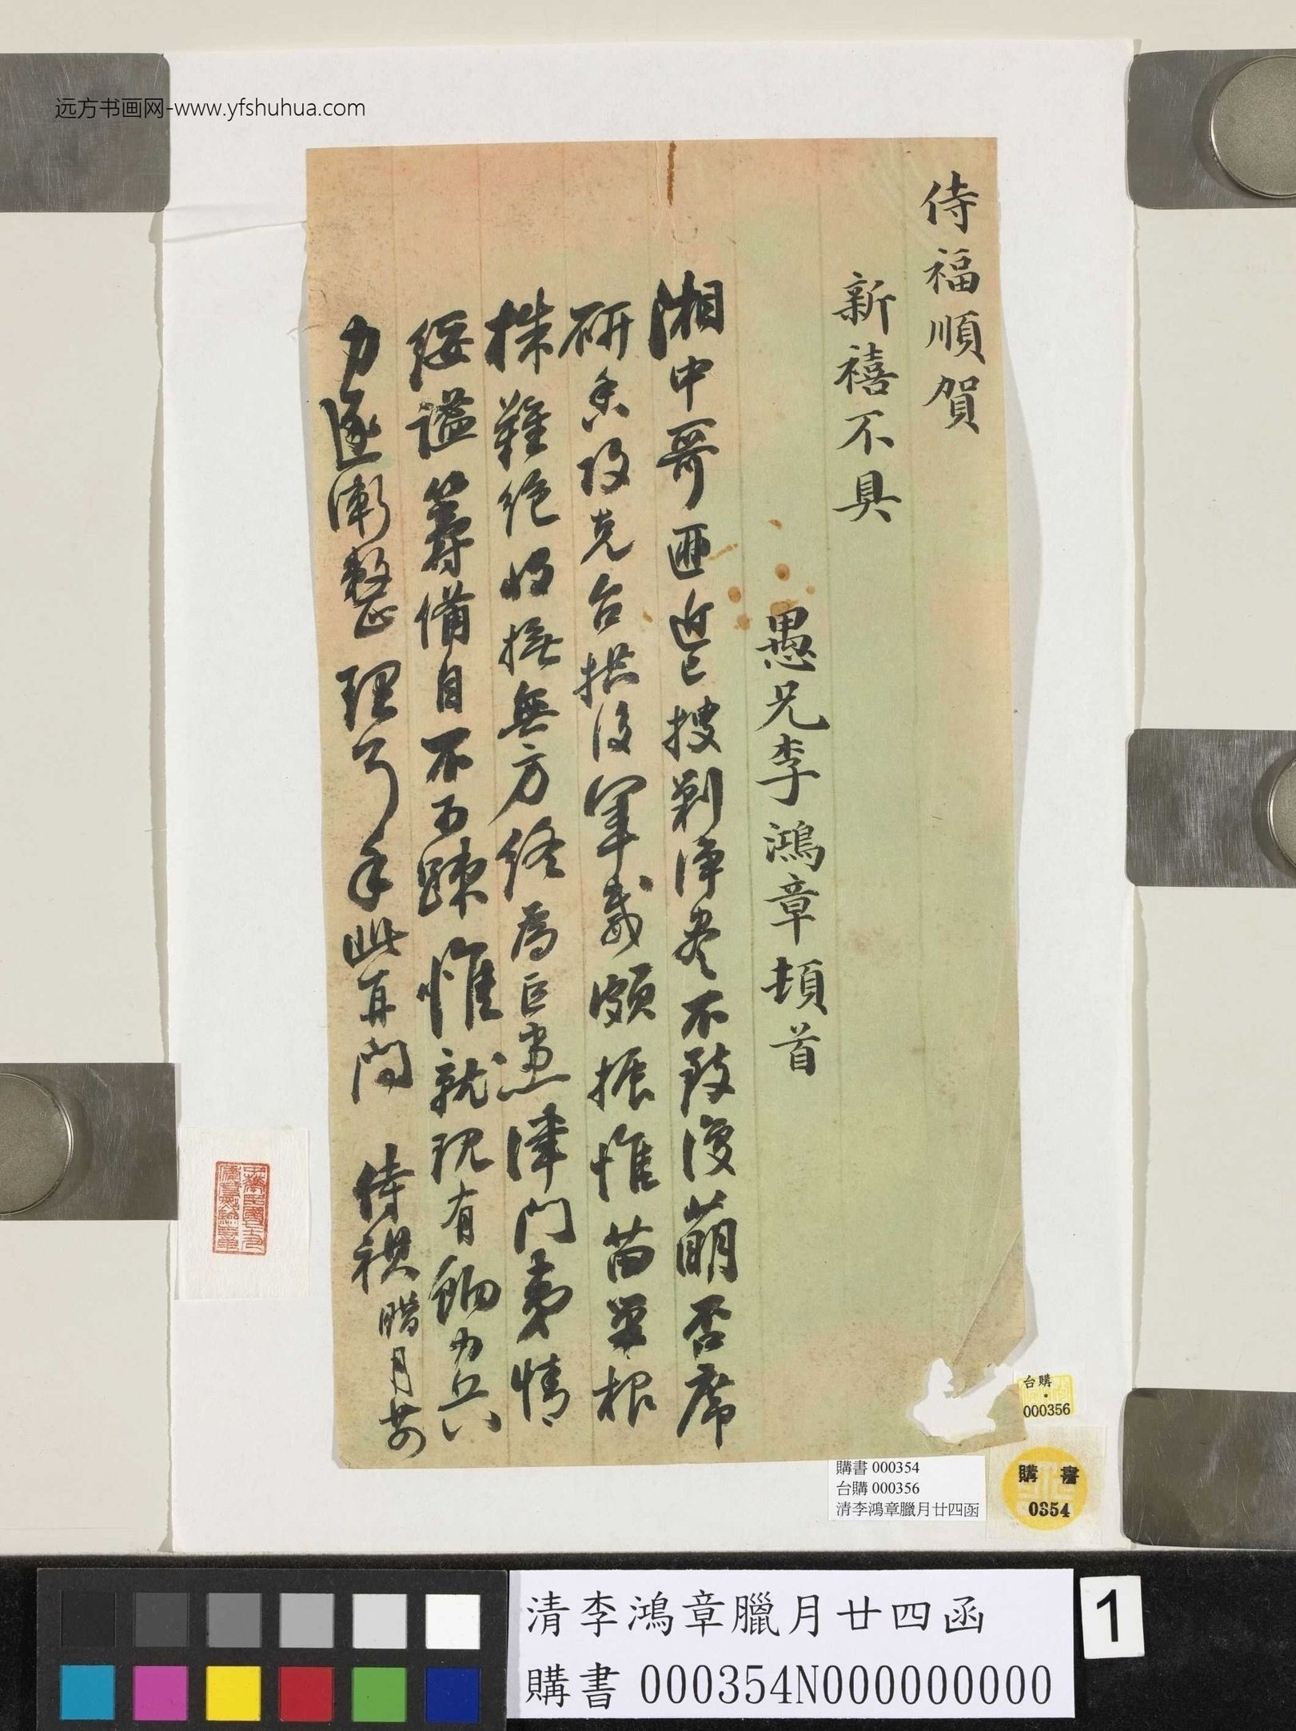 远方书画网-www.yfshuhua.com
侍福順賀
新禧不具
愚兄李鴻章頓首
湘中哥匪近已搜剿淨盡不致復萌否席
研香攻克台拱後軍威頗振惟苗巢根
株難絕收撫無方終為巨患津門夷情
綏謐籌備自不可疎惟就現有餉力兵
力逐漸整理耳手此再問
侍祺臘月廿四
台購
000356
購書 000354
台購 000356
清李鴻章臘月廿四函
購書
0354
清李鴻章臘月廿四函
購書 000354N000000000
1